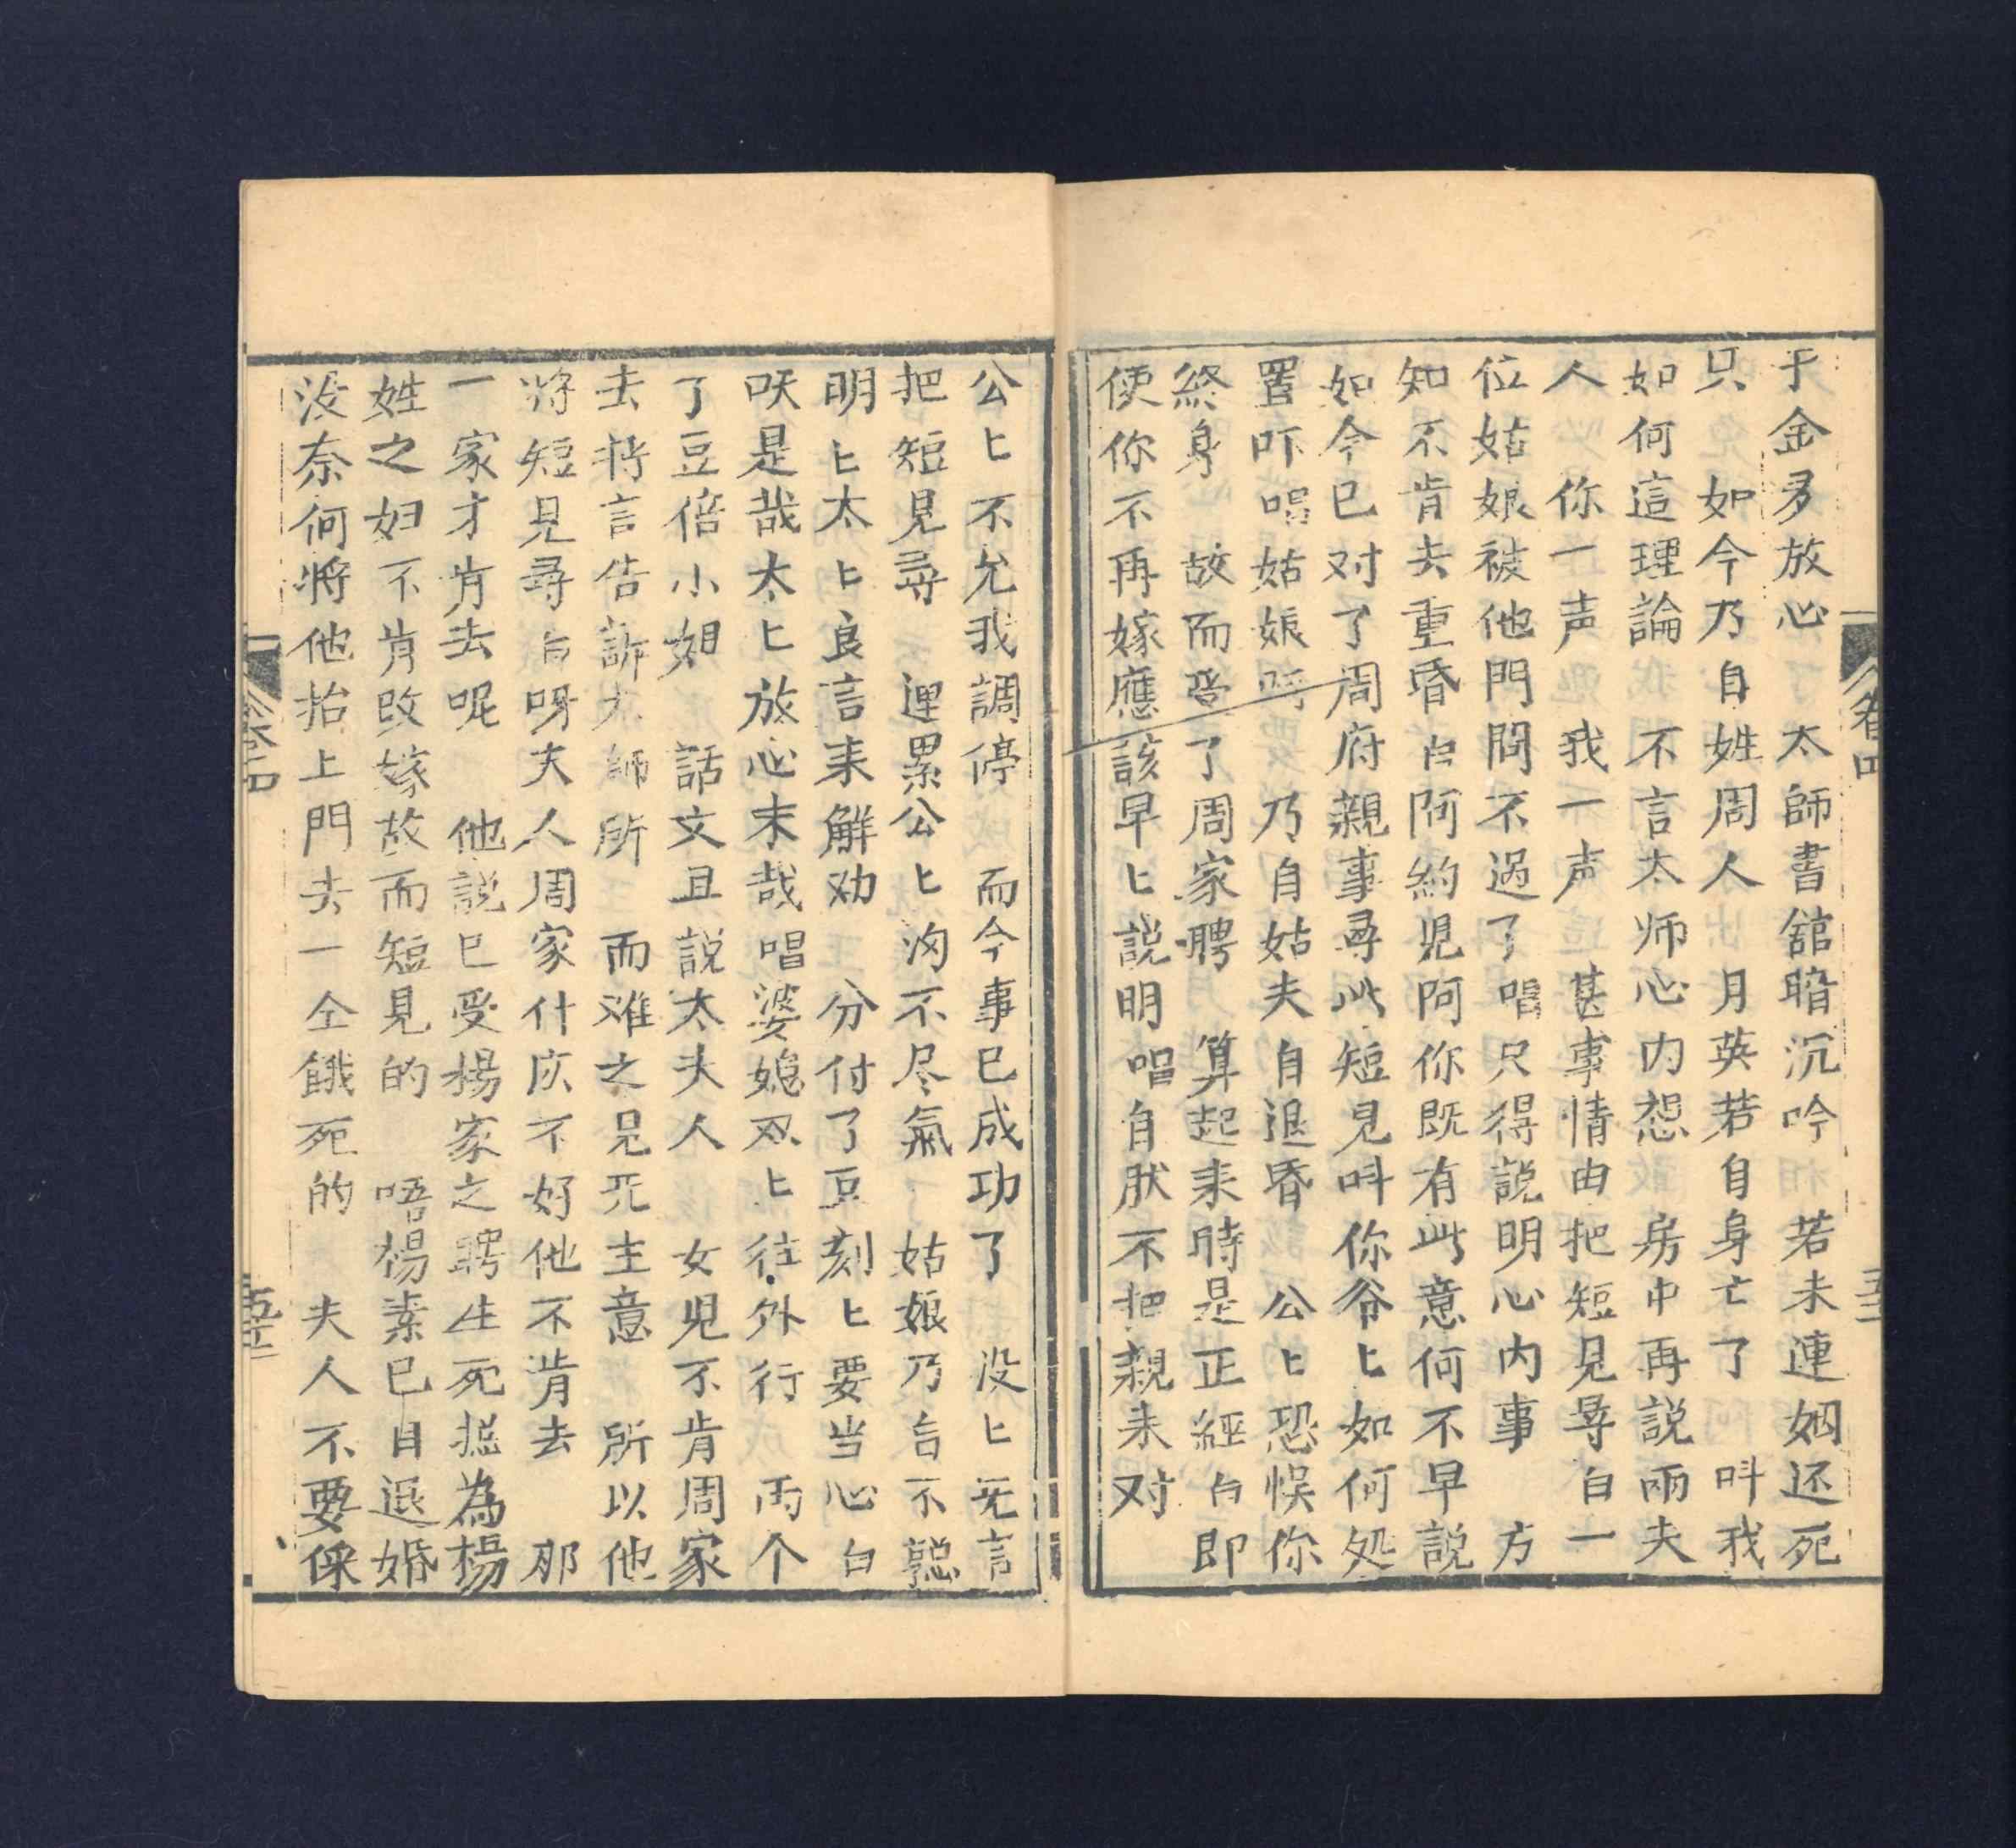 于金多放心　太師書舘暗沉吟　若未連姻还死
只　如今乃自姓周人　月英若自身亡了　呌我
如何這理論　不言太师心内想　房中再説両夫
人　你一声　我一声　甚事情由把短見尋白一
位姑娘被他門問不过了唱只得説明心内事　方
知不肯去重昏白阿約児阿你既有此意何不早説
如今已对了周府親事尋此短見呌你爷〻如何处
置吓唱姑娘　乃自姑夫自退昏　公〻恐悮你
終身　故而受了周家聘　算起来時是正經白即
使你不再嫁應該早〻説明唱自肰不把親来对
公〻不允我調停　而今事已成功了　没〻无言
把短見尋　連累公〻淘不尽氣　姑娘乃言不聽
明〻太〻良言来解劝　分付了豆刻〻要当心白
吷是哉太〻放心末哉唱婆媳双〻往外行　両个
了豆倍小姐　話文且説太夫人　女児不肯周家
去将言告訴太師所　而难之見死主意　所以他
将短見尋白呀夫人周家什庅不好他不肯去　那
一家才肯去呢　他説已受楊家之聘生死搃為楊
姓之妇不肯改嫁故而短見的　唔楊素已自退婚
没奈何將他抬上門去一仝餓死的　夫人不要倸
卷四